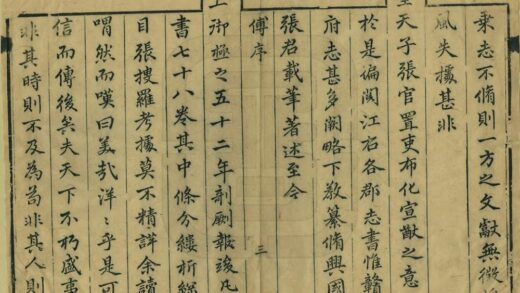 乘志不脩則一方之文獻無徵
風失據甚非
天子張官置吏布化宣猷之意
於是徧閱江右各郡志書惟贛
府志甚多闕略下教纂脩興國
張君載筆著述至今
傅序 三
上御極之五十二年剞劂報竣凡
書七十八卷其中條分縷析
目張搜羅考據莫不精詳余讀
喟然而嘆曰美哉洋〻乎是可
信而傳後矣夫天下不朽盛事
非其時則不及為苟非其人則